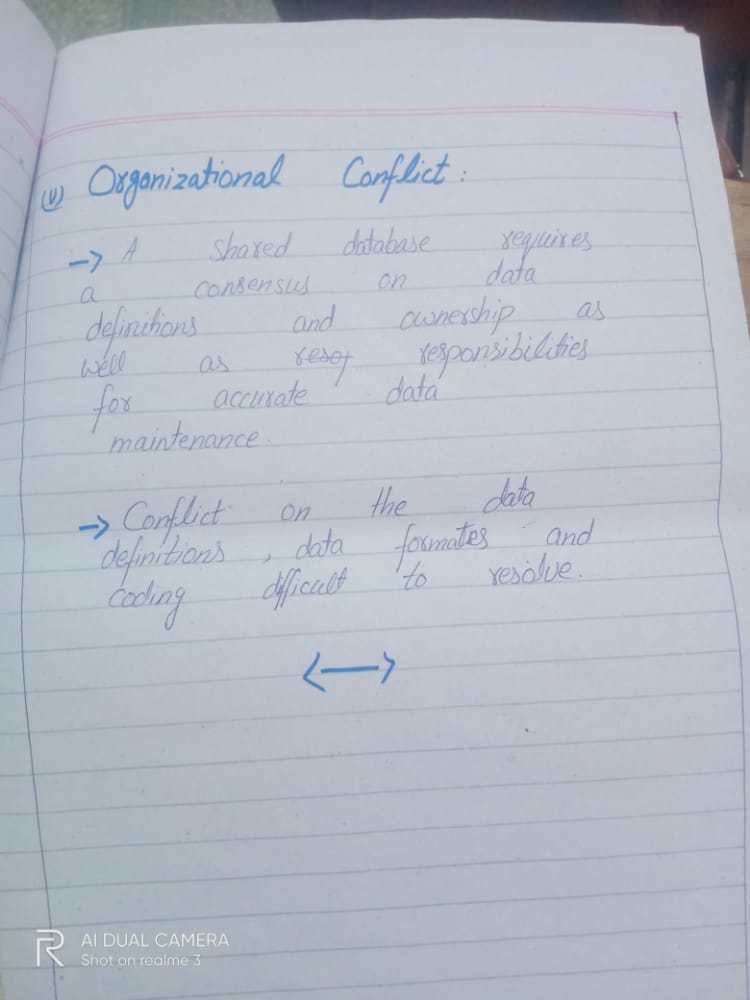 (v) Organizational Conflict :
→ A shared database requires
a consensus on data
definitions and ownership as
well as responsibilities
for accurate data
maintenance.
→ Conflict on the data
definitions , data formates and
coding difficult to resolve.
AI DUAL CAMERA
Shot on realme 3